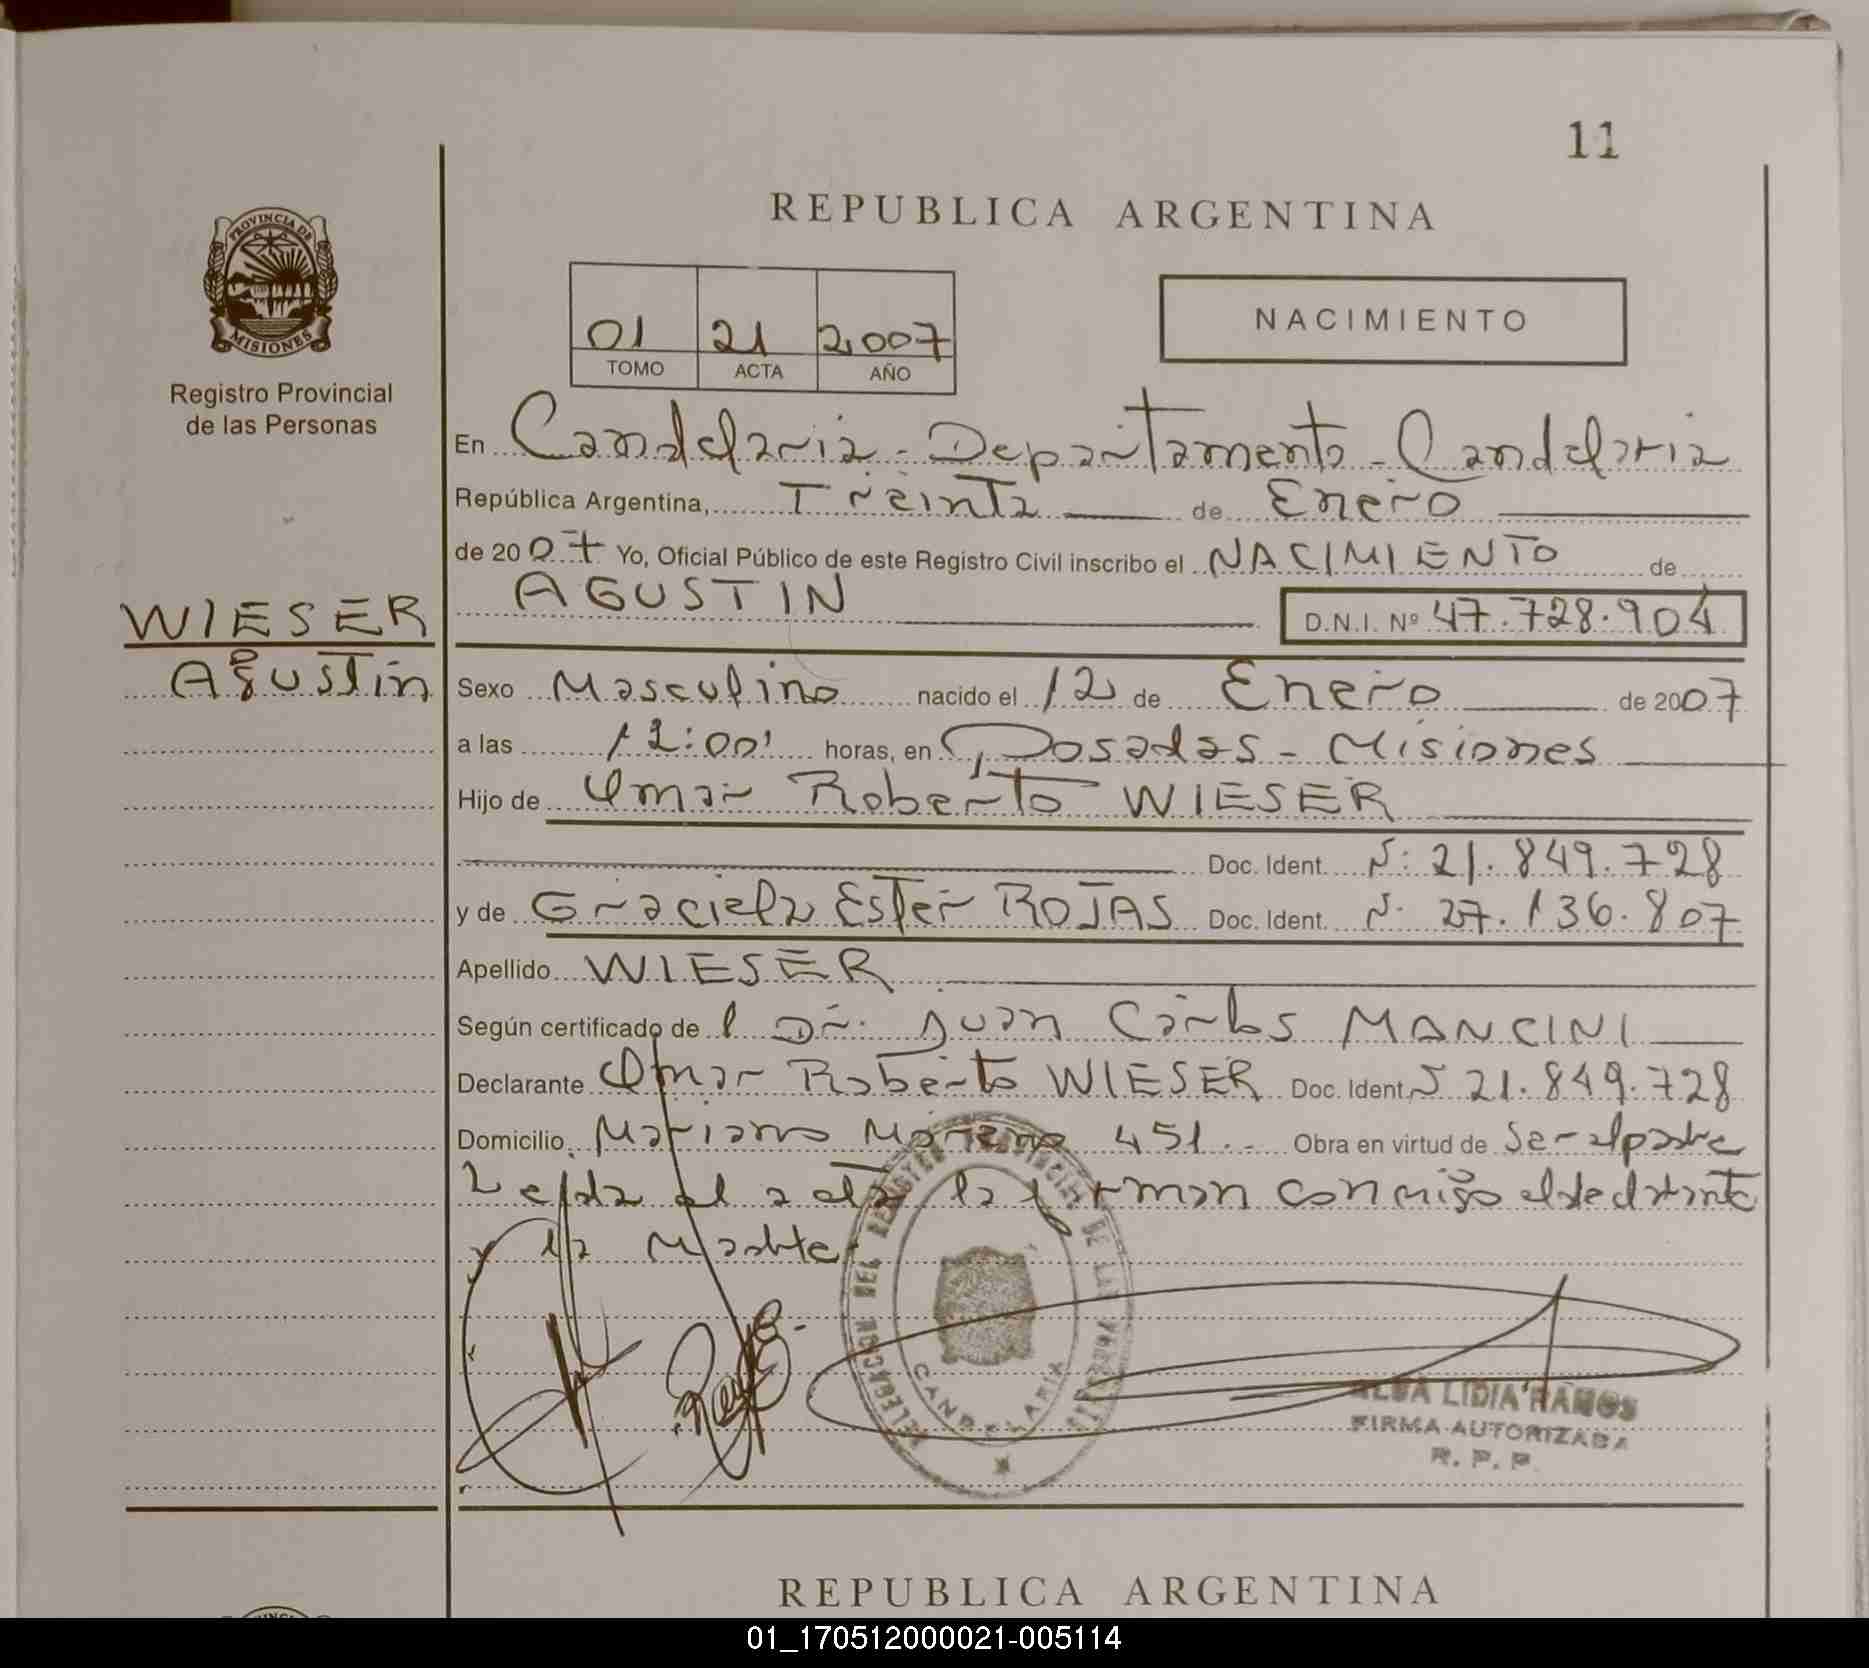 11
REPUBLICA ARGENTINA
PROVINCIA DE
MISIONES
Registro Provincial
de las Personas
01 21 2.007
TOMO ACTA AÑO
NACIMIENTO
En Candelaria - Departamento - Candelaria
República Argentina, Treinta de Enero
de 2007 Yo, Oficial Público de este Registro Civil inscribo el NACIMIENTO de
AGUSTIN D.N.I. Nº 47.728.904
WIESER
Agustin
Sexo Masculino nacido el 12 de Enero de 2007
a las 12:00' horas, en Posadas - Misiones
Hijo de Omar Roberto WIESER
Doc. Ident. N: 21.849.728
y de Graciela Ester ROJAS Doc. Ident. N. 27.136.807
Apellido WIESER
Según certificado de l Dr. Juan Carlos MANCINI
Declarante Omar Roberto WIESER Doc. Ident. N 21.849.728
Domicilio Mariano Moreno 451.- Obra en virtud de Ser el padre
Leida el acta la firman conmigo el declarante
y la Madre.
DELEGACION DEL REGISTRO PROVINCIAL DE LAS PERSONAS
CANDELARIA
ALBA LIDIA RAMOS
FIRMA AUTORIZADA
R. P. P.
REPUBLICA ARGENTINA
01_170512000021-005114